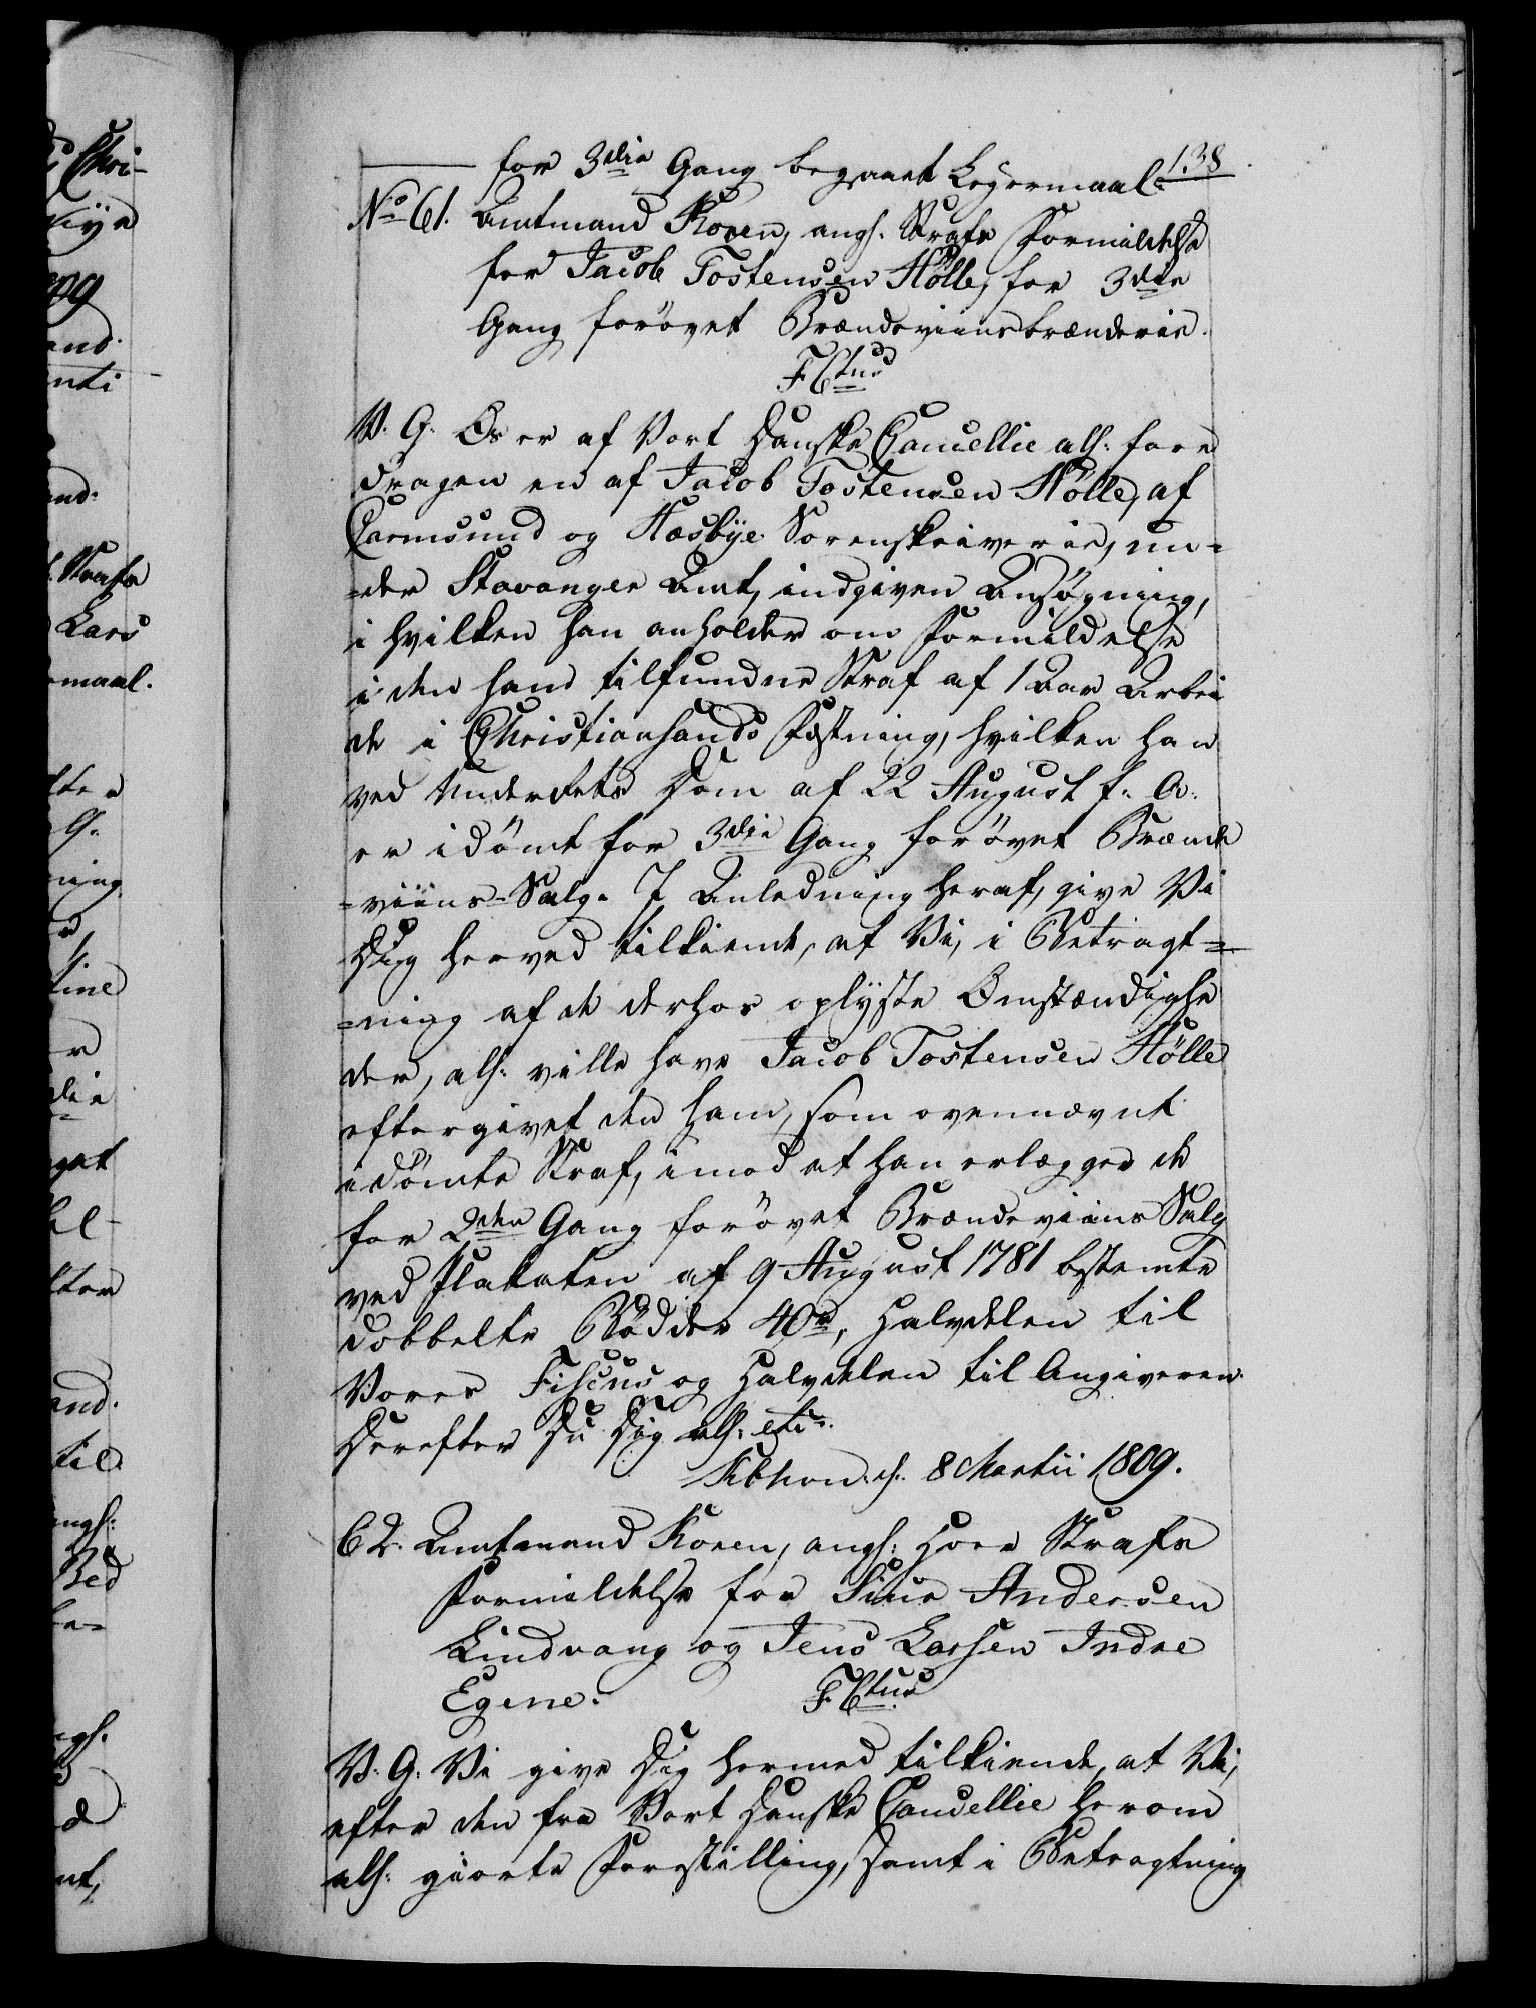 138
for 3die Gang begaaet Leyermaal.
No 61. Amtmand Koren, angl. Strafs Formildelse
for Jacob Tostensen Hölle, for 3die
Gang forövet Brændeviinsbrænderie.
F. Ctus
V. G. Os er af Vort Danske Cancellie all: fore
dragen en af Jacob Tostensen Hölle, af
Carmsund og Hæsbÿe Sorenskriverie, un-
-der Stavanger Amt, indgiven Ansögning,
i hvilken han anholder om Formildelse
i den ham tilfundne Straf af 1 Aar Arbei
de i Christiansands Fæstning, hvilken han
ved Underrets Dom af 22 August f. A.
er idömt for 3die Gang forövet Brænde
-viins-Salg. I Anledning heraf, give Vi
Dig herved tilkiende, at Vi, i Betragt-
-ning af de derhos oplÿste Omstændighe
der, all: ville have Jacob Tostensen Hölle
eftergivet den ham, som ovennævnt
idömte Straf, imod at han erlægger de
for 2den Gang forövet Brændeviins Salg
ved Plakaten af 9 August 1781 bestemte
dobbelte Bödder 40 rd, Halvdelen til
Vores Fiscus og Halvdelen til Angiveren.
Derefter Du Dig all: etc.
Kbhavn. d. 8 Martii 1809.
62. Amtmand Koren, angl: Hoer Strafs
Formildelse for Siur Andersen
Lindvang og Jens Larsen Indre
Egene.
F. Ctus
V. G. Vi give Dig hermed tilkiende, at Vi,
efter den fra Vort Danske Cancellie herom
all: giorte Forestilling, samt i Betragtning